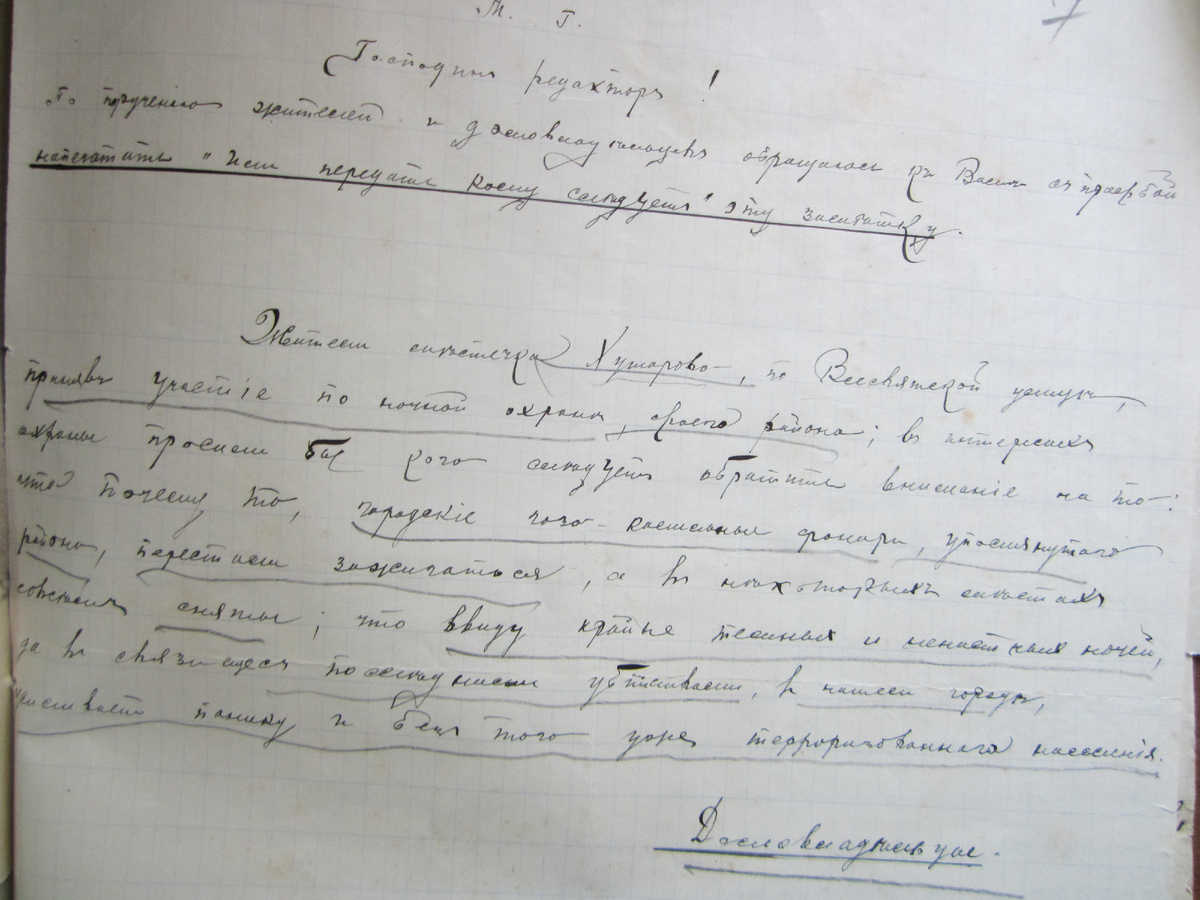 М. Г.
7
Господинъ редакторъ!
По порученію жителей и домовладѣльцевъ обращаюсь къ Вамъ съ просьбой
напечатать "или передать кому слѣдуетъ" эту замѣтку.
Жители мѣстечка, по Всесвятской улицѣ,
принявъ участіе по ночной охранѣ, своего района; въ интересахъ
охраны просили бы кого слѣдуетъ обратить вниманіе на то:
что почему то, городскіе газо-калильные фонари, упомянутаго
района, перестали зажигаться, а въ нѣкоторыхъ мѣстахъ
совсѣмъ сняты; что ввиду крайне темныхъ и ненастныхъ ночей,
да въ связи съ послѣдними убійствами, в нашемъ городѣ,
панику и безъ того уже терроризованнаго населенія.
Домовладѣльцы.